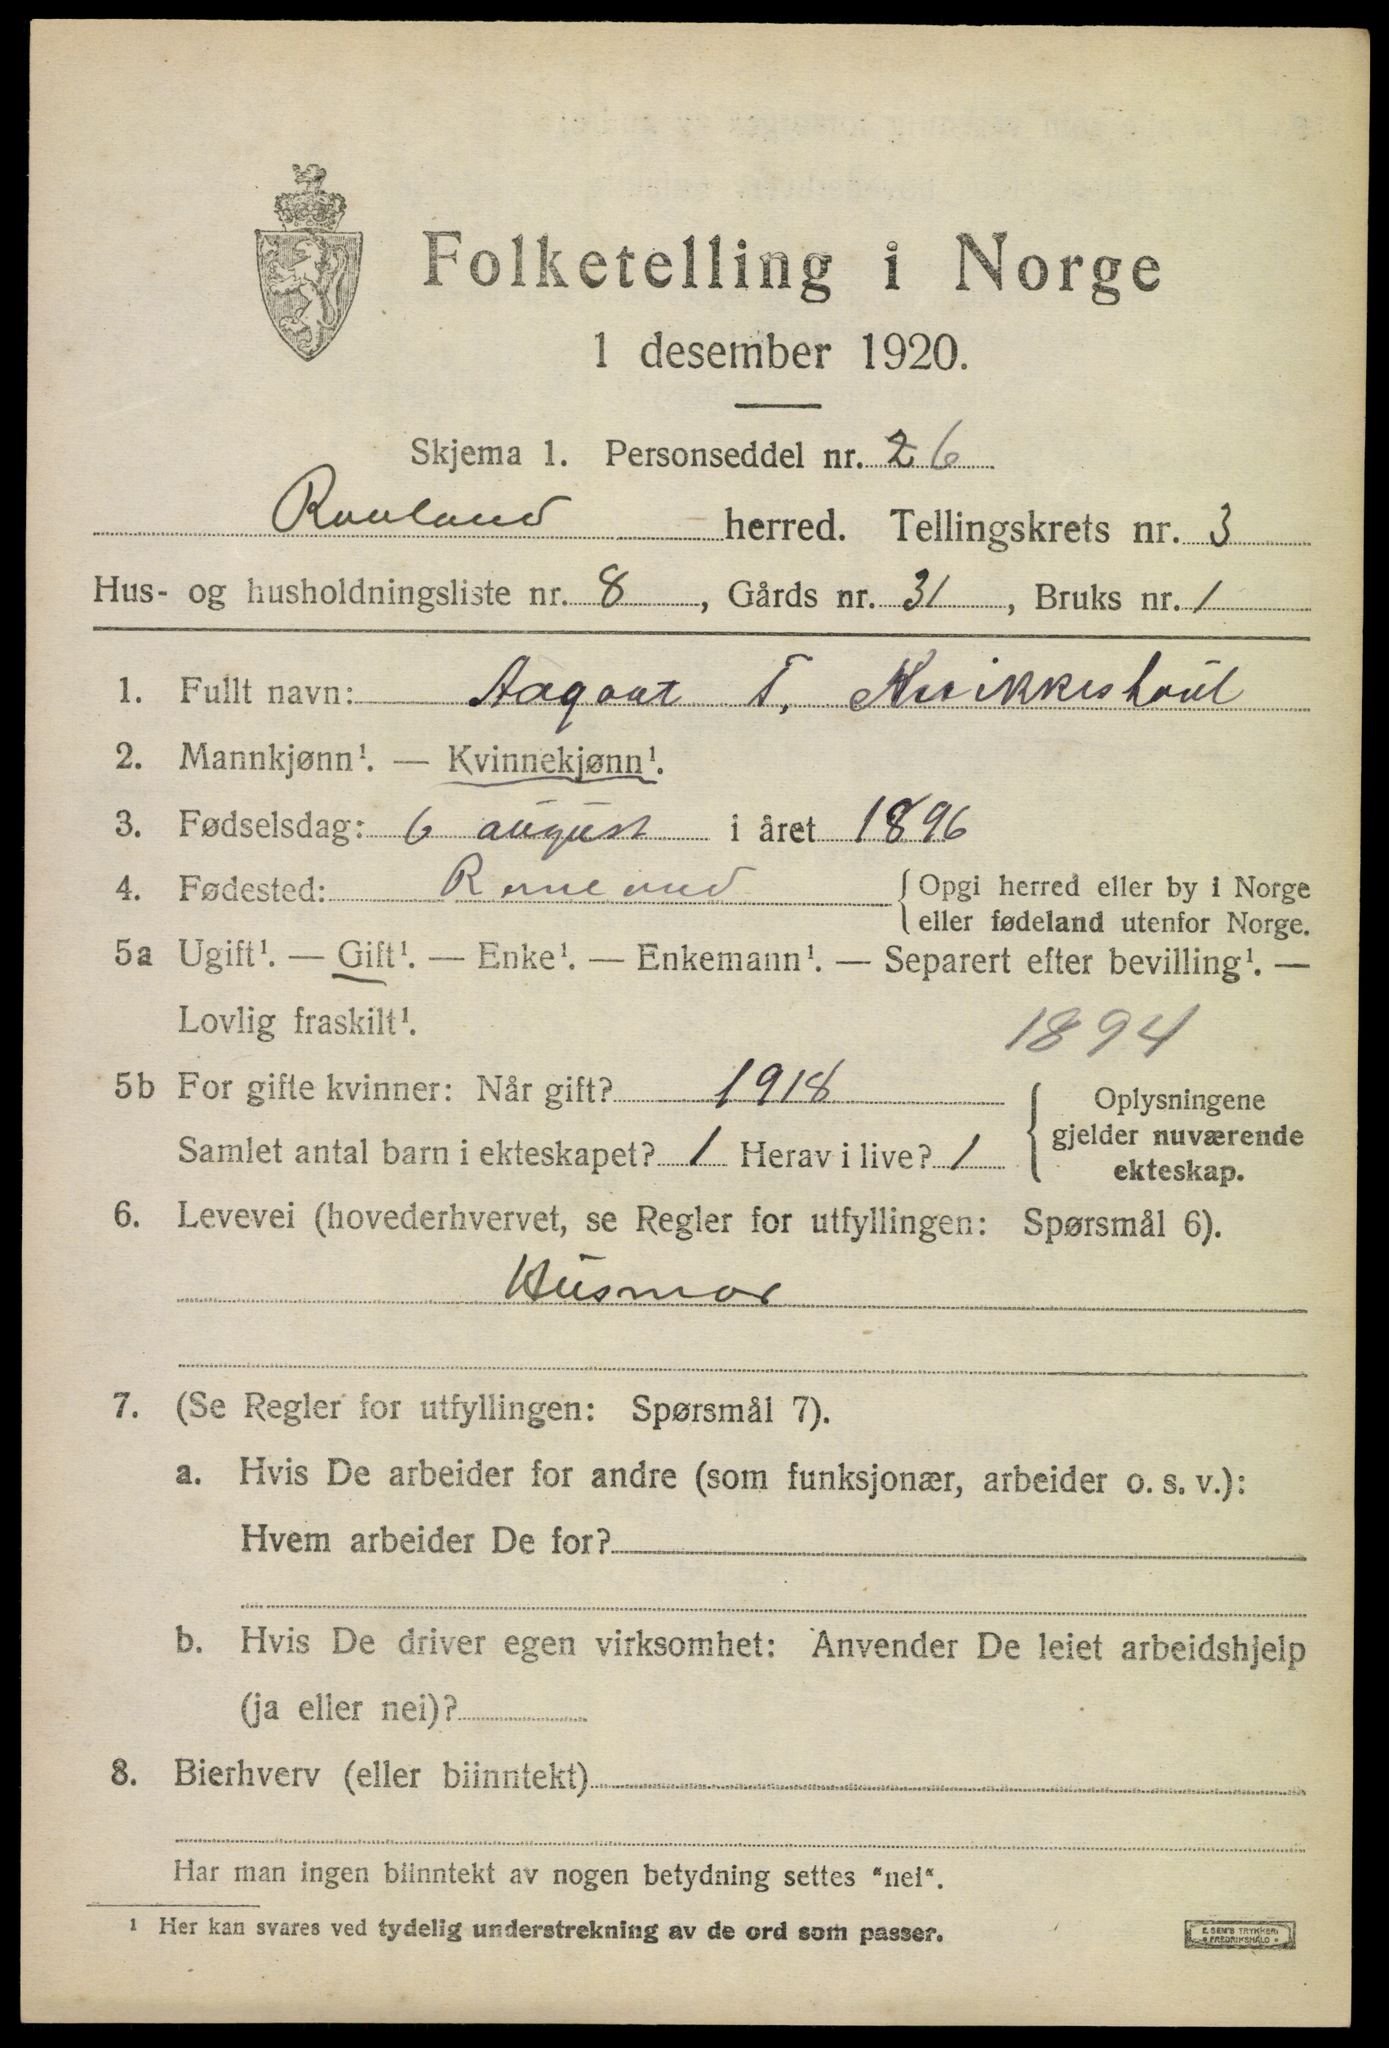 Folketelling i Norge
1 desember 1920.
Skjema 1. Personseddel nr. 2 6
Rauland herred. Tellingskrets nr. 3
Hus- og husholdningsliste nr. 8, Gårds nr. 31, Bruks nr. 1
1. Fullt navn: Aagaat T. Kvikkeshaul
2. Mannkjønn¹. — Kvinnekjønn¹.
3. Fødselsdag: 6 august i året 1896
4. Fødested: Rauland {Opgi herred eller by i Norge
eller fødeland utenfor Norge.
5a Ugift¹. — Gift¹. — Enke¹. — Enkemann¹. — Separert efter bevilling¹. —
Lovlig fraskilt¹.
1894
5b For gifte kvinner: Når gift? 1918
Samlet antal barn i ekteskapet? 1 Herav i live? 1
Oplysningene
gjelder nuværende
ekteskap.
6. Levevei (hovederhvervet, se Regler for utfyllingen: Spørsmål 6).
Husmor
7. (Se Regler for utfyllingen: Spørsmål 7).
a. Hvis De arbeider for andre (som funksjonær, arbeider o. s. v.):
Hvem arbeider De for?
b. Hvis De driver egen virksomhet: Anvender De leiet arbeidshjelp
(ja eller nei)?
8. Bierhverv (eller biinntekt)
Har man ingen biinntekt av nogen betydning settes "nei".
¹ Her kan svares ved tydelig understrekning av de ord som passer.
E. SEM'S TRYKKERI
FREDRIKSHALD